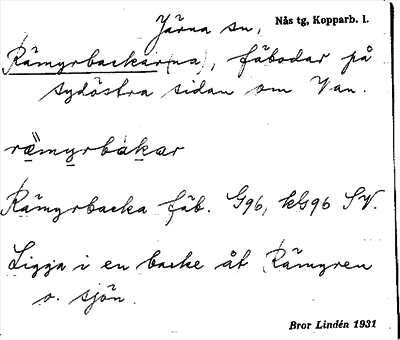 Järna sn, Nås tg, Kopparb. l.
Rämyrbackar(na), fäbodar på
sydöstra sidan om Van.
rämyrbakar
Rämyrbacka fäb. G96, kG96 SV.
Ligga i en backe åt Rämyren
o. sjön.
Bror Lindén 1931